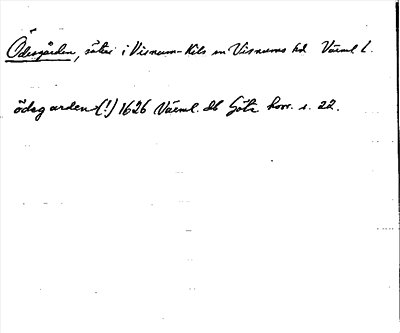 Ödesgården, säter i Visnum-Kils sn Visnums hd Värml l.
ödeg arden (!) 1626 Värml. db Göta hovr. s. 22.